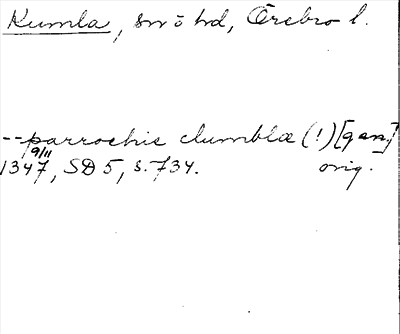 Kumla, sn o hd, Örebro l.
--parrochie clumblæ (!) [gen.]
19/11
1347, SD 5, s. 734. orig.